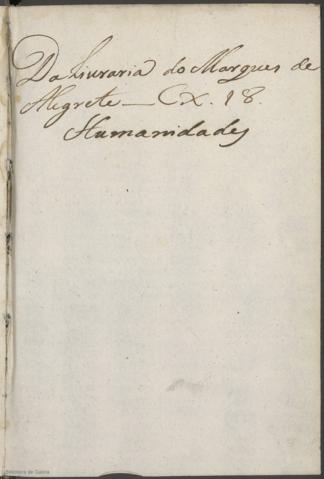 Da Liuraria do Marques de
Alegrete — CX. 18.
Humanidades
Biblioteca de Galicia